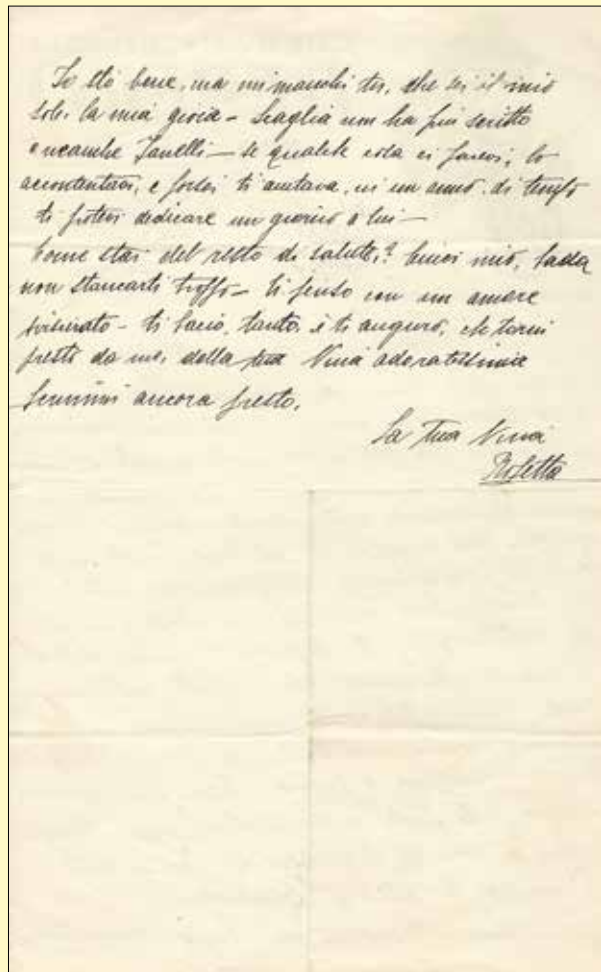 Io stò bene, ma mi manchi tu, che sei il mio
sole, la mia gioia – Scaglia non ha più scritto
e neanche Zanelli – se qualche cosa ci fosse, lo
accontentavi, e forse ti aiutava, in un anno di tempo
ti potevi dedicare un giorno a lui –
Come stai del resto di salute? Cucci mio, bada
non stancarti troppo – ti penso con un amore
sviscerato – ti bacio, tanto, e ti auguro, che torni
presto da me, dalla tua Ninà adoratissima
Scrivimi ancora presto.
La tua Ninà
Rosetta